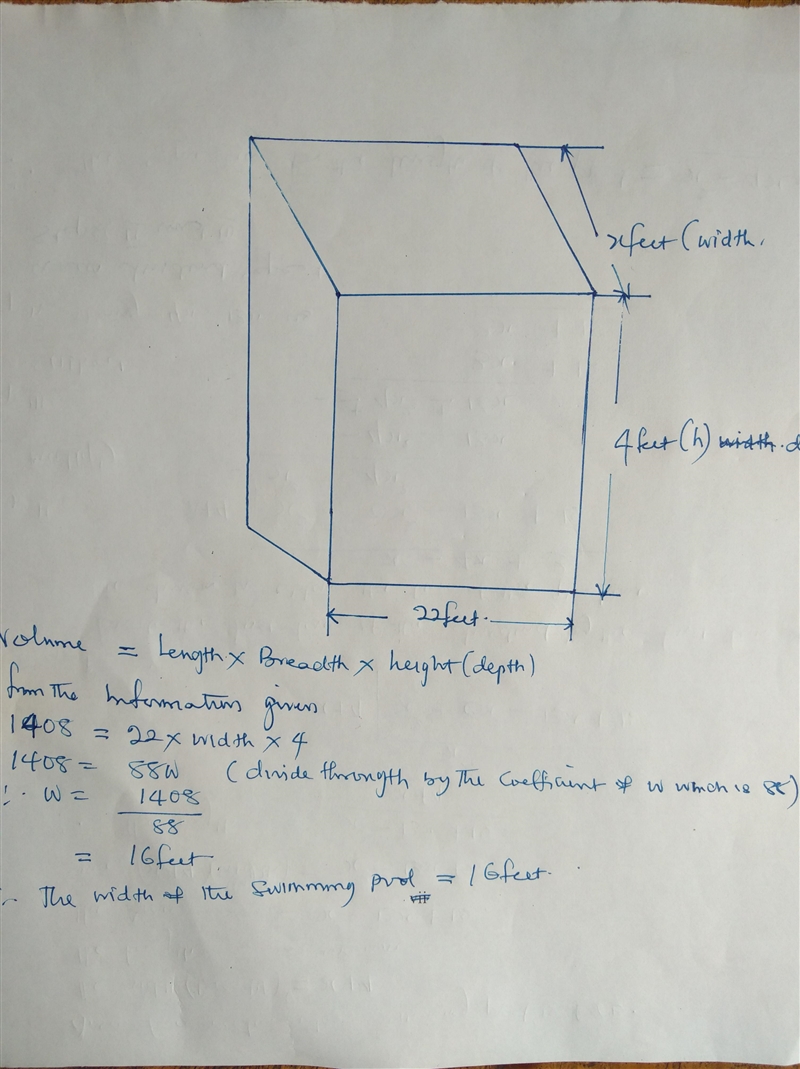 xfeet (width.
4 feet (h) width. d
22feet.
Volume = Length x Breadth x height (depth)
from the Information given
1408 = 22 x width x 4
1408 = 88W (divide throngth by the Coefficient of W which is 88)
∴ W = 1408
88
= 16feet.
∴ The width of the Swimming pool = 16feet.